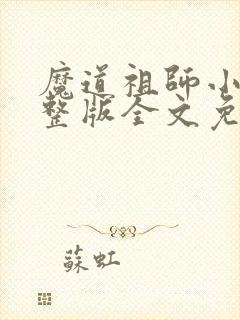 魔道祖師小
整版全文免
蘇虹